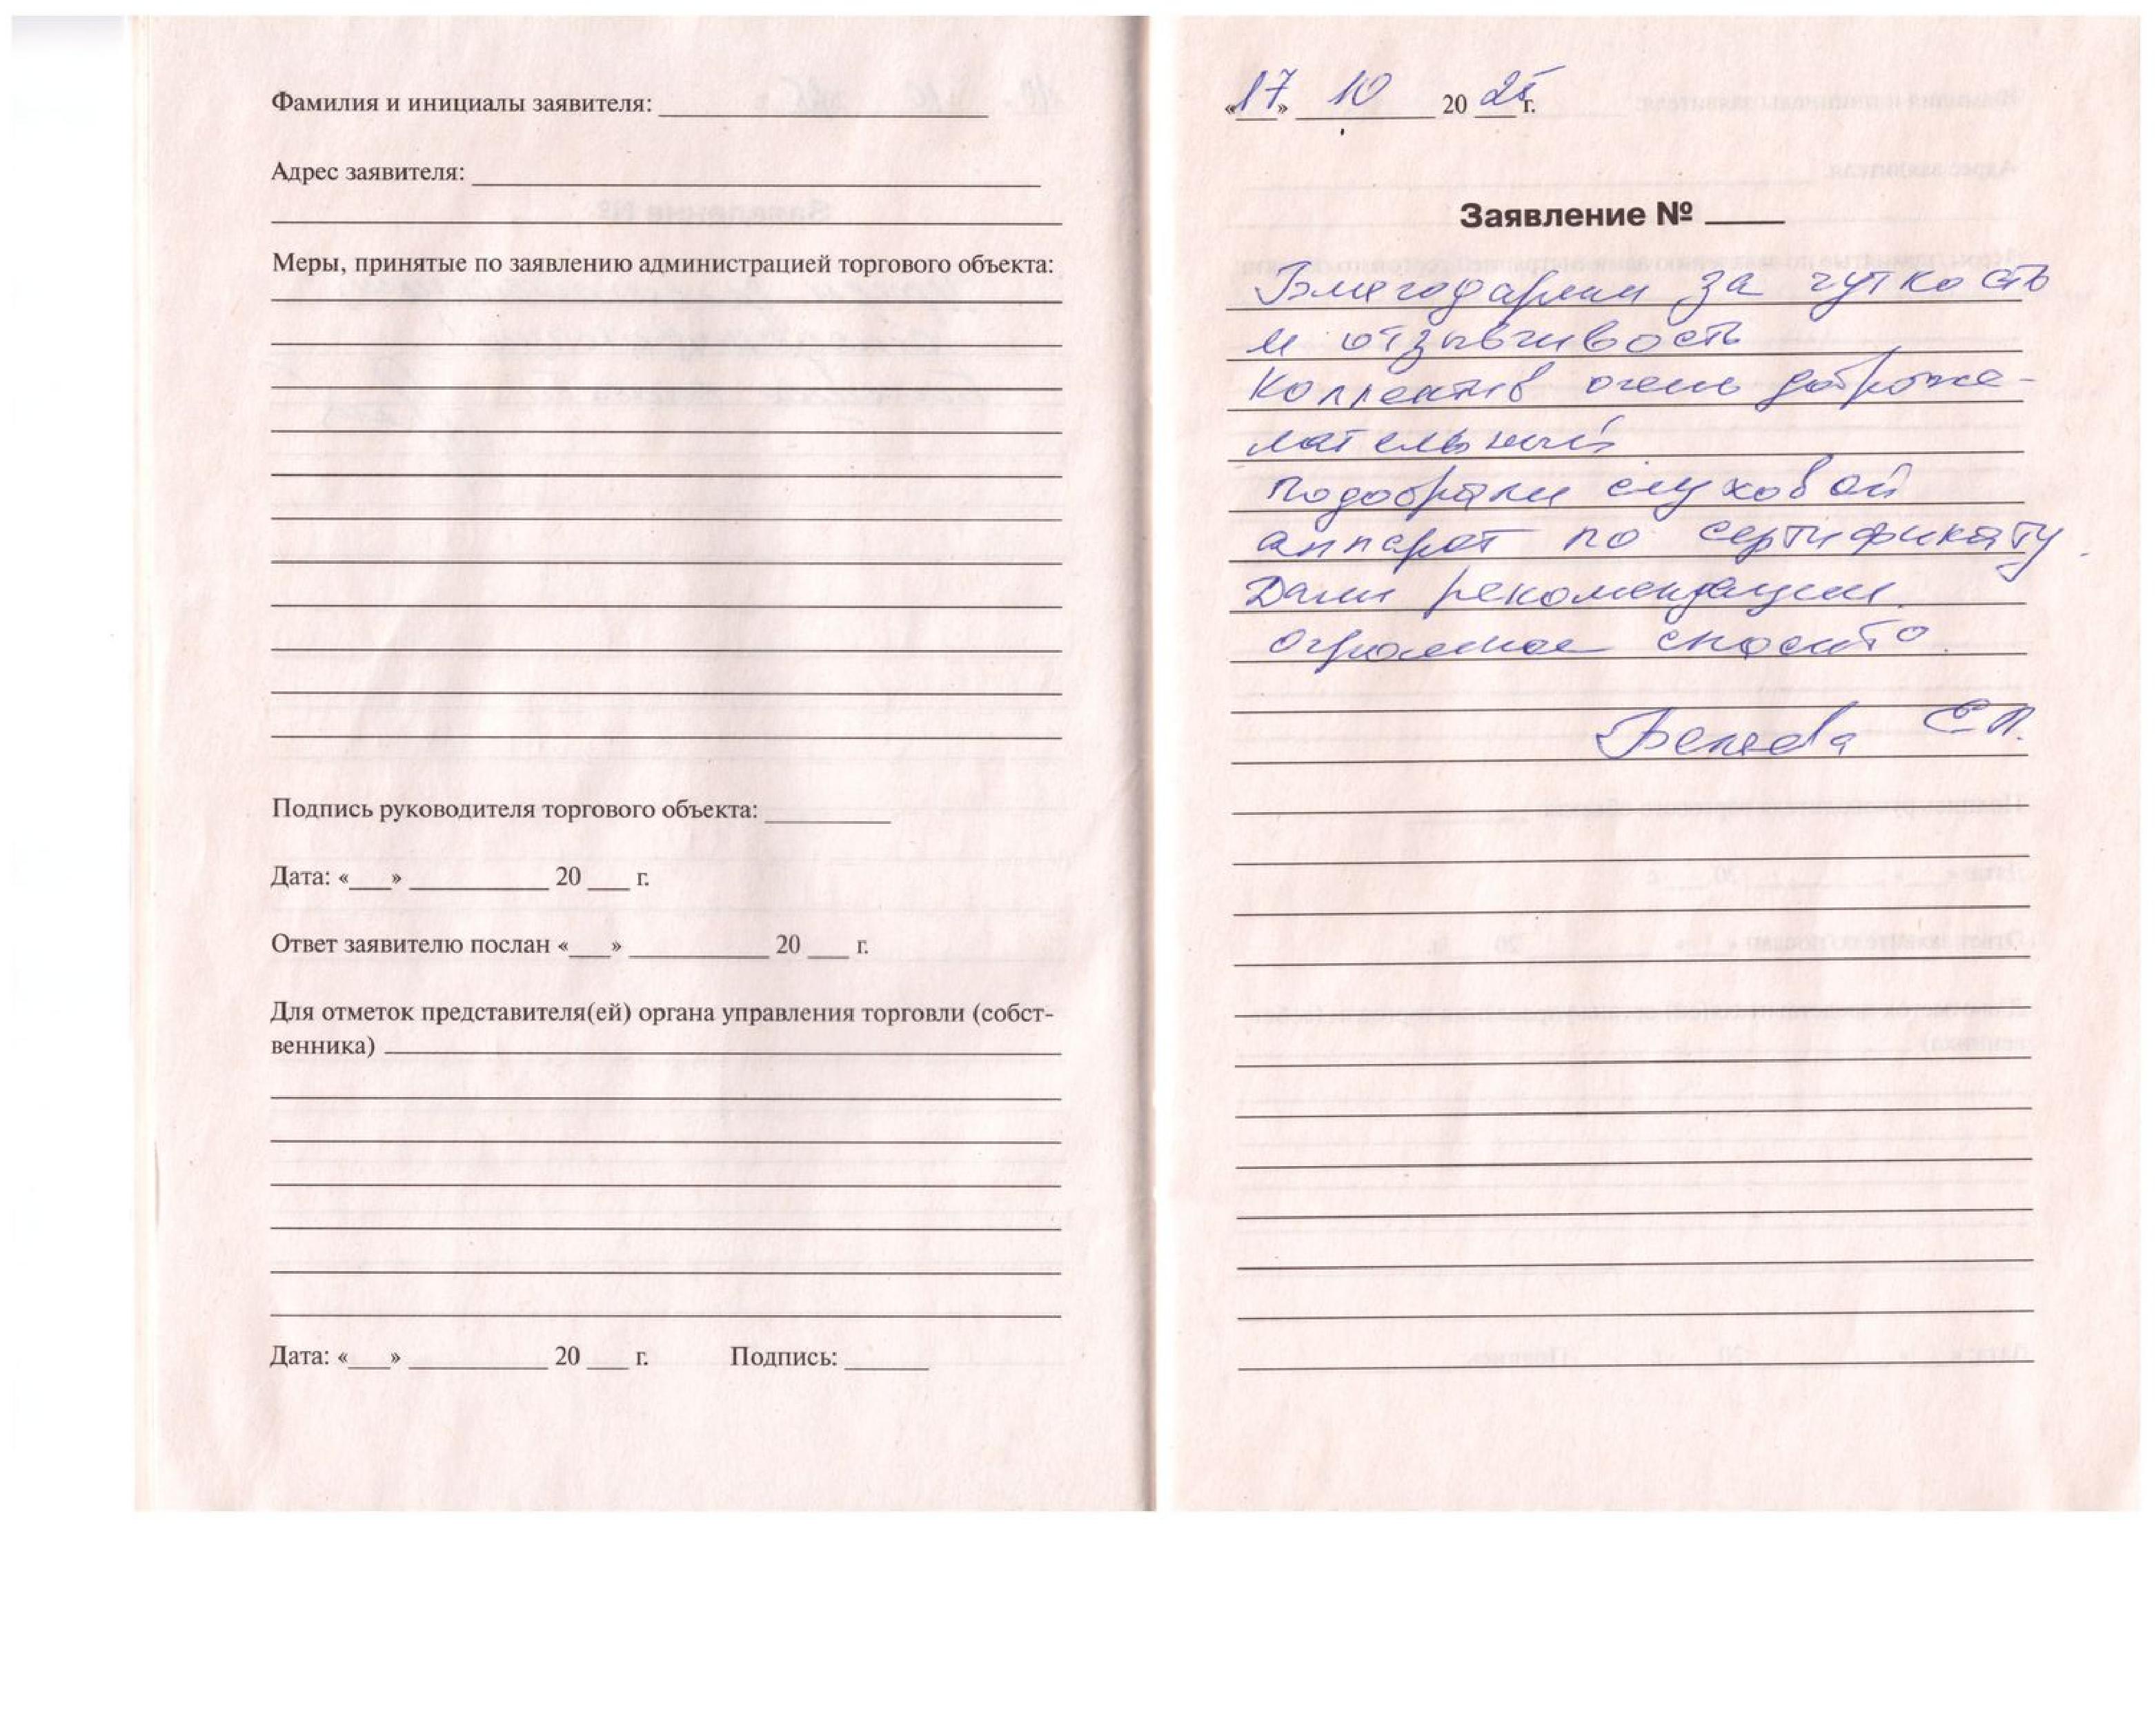 Фамилия и инициалы заявителя:
Адрес заявителя:
Меры, принятые по заявлению администрацией торгового объекта:
Подпись руководителя торгового объекта:
Дата: «___» __________ 20 ___ г.
Ответ заявителю послан «___» __________ 20 ___ г.
Для отметок представителя(ей) органа управления торговли (собст-
венника)
Дата: «___» __________ 20 ___ г. Подпись: ______
«17» 10 20 25 г.
Заявление № ____
Благодарим за чуткость
и отзывчивость
Коллектив очень доброже-
лательный
подобрали слуховой
аппарат по сертификату.
Дали рекомендации.
огромное спасибо.
Е П.